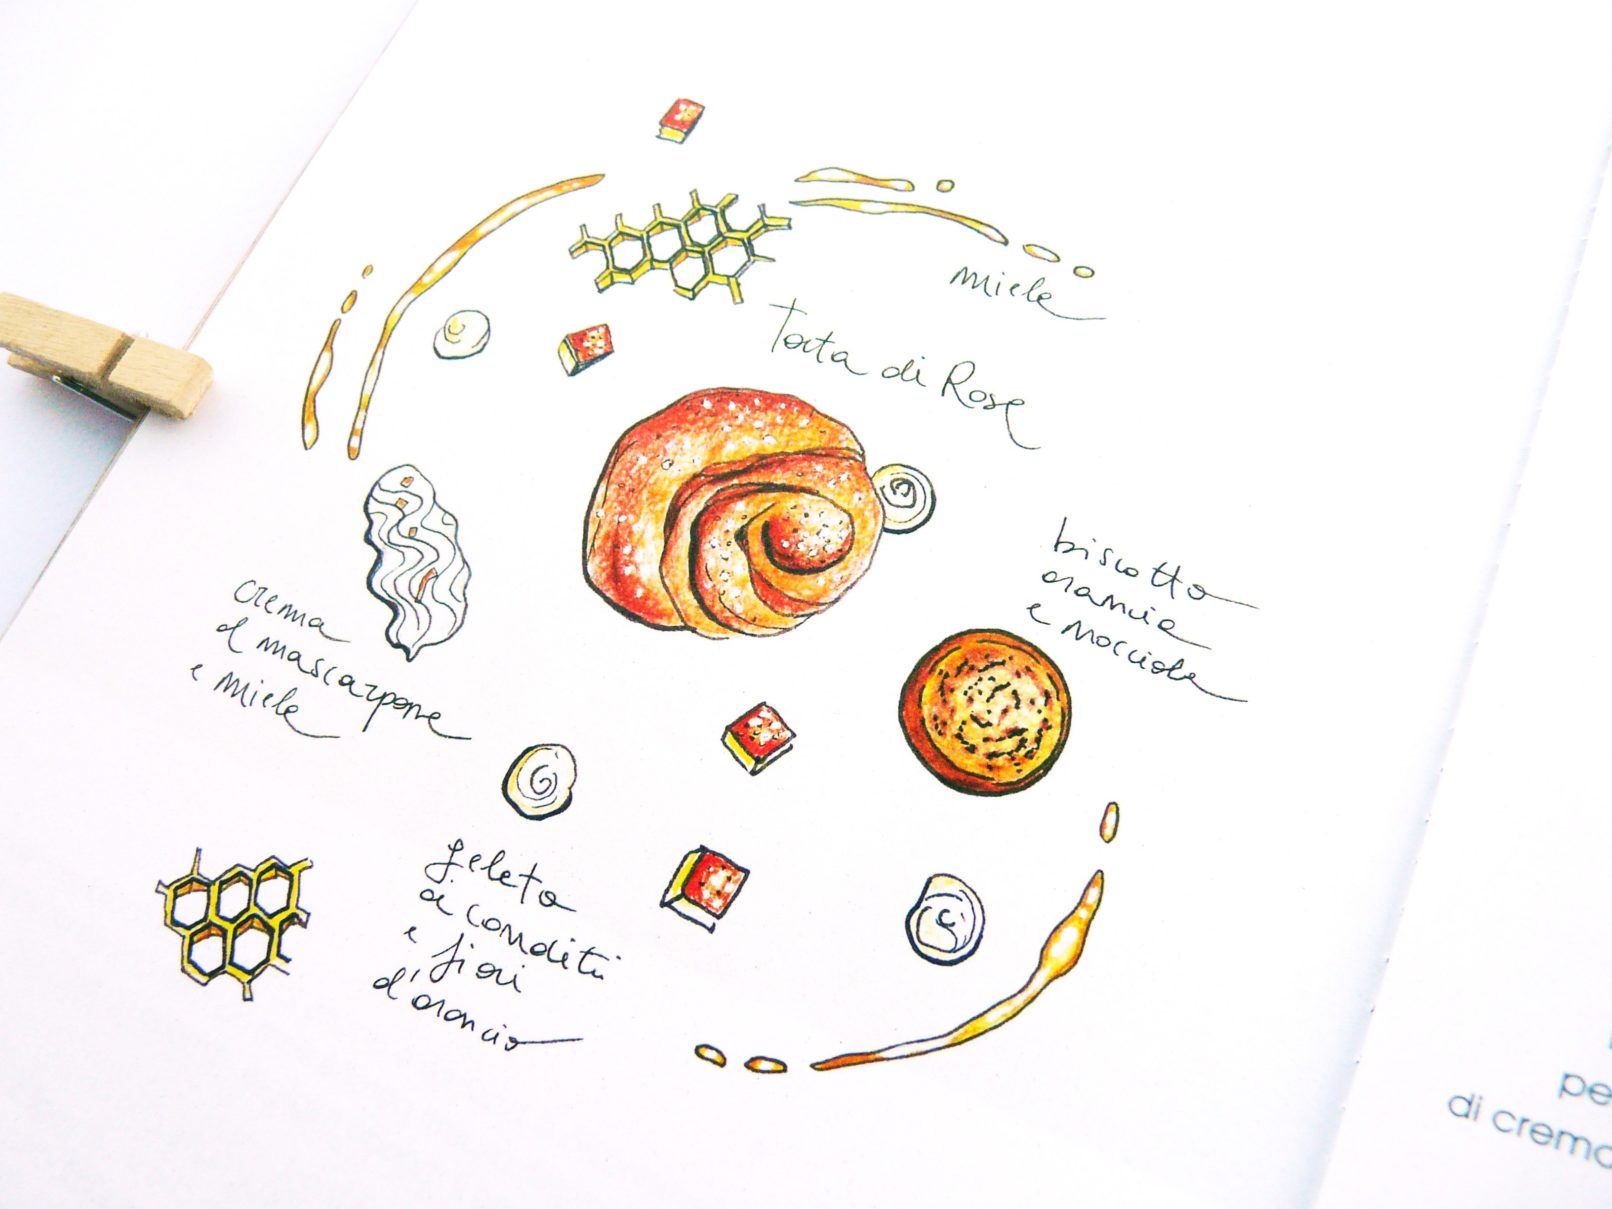 miele
Torta di Rose
biscotto
arancia
e nocciole
crema
al mascarpone
e miele
gelato
ai canditi
e fiori
d'arancio
di crema